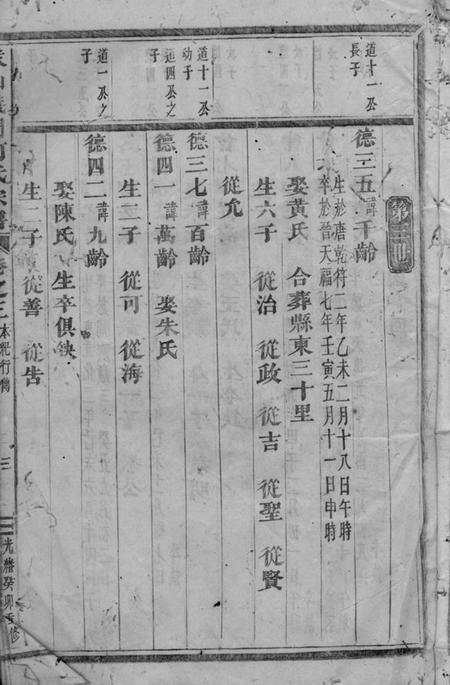 第三世
道十一公
長子
德三五諱千齡
生於唐乾符二年乙未二月十八日午時
卒於晉天福七年壬寅五月十一日申時
娶黃氏 合葬縣東三十里
生六子 從治 從政 從吉 從聖 從賢
從允
道十一公
幼子
德三七諱百齡
道四公之
子
德四一諱萬齡 娶朱氏
生二子 從可 從海
道一公之
子
德四二諱九齡
娶陳氏 生卒俱缺
生二子 從善 從告
氏宗譜 卷之三 本紀行傳 三
光緒癸卯重修